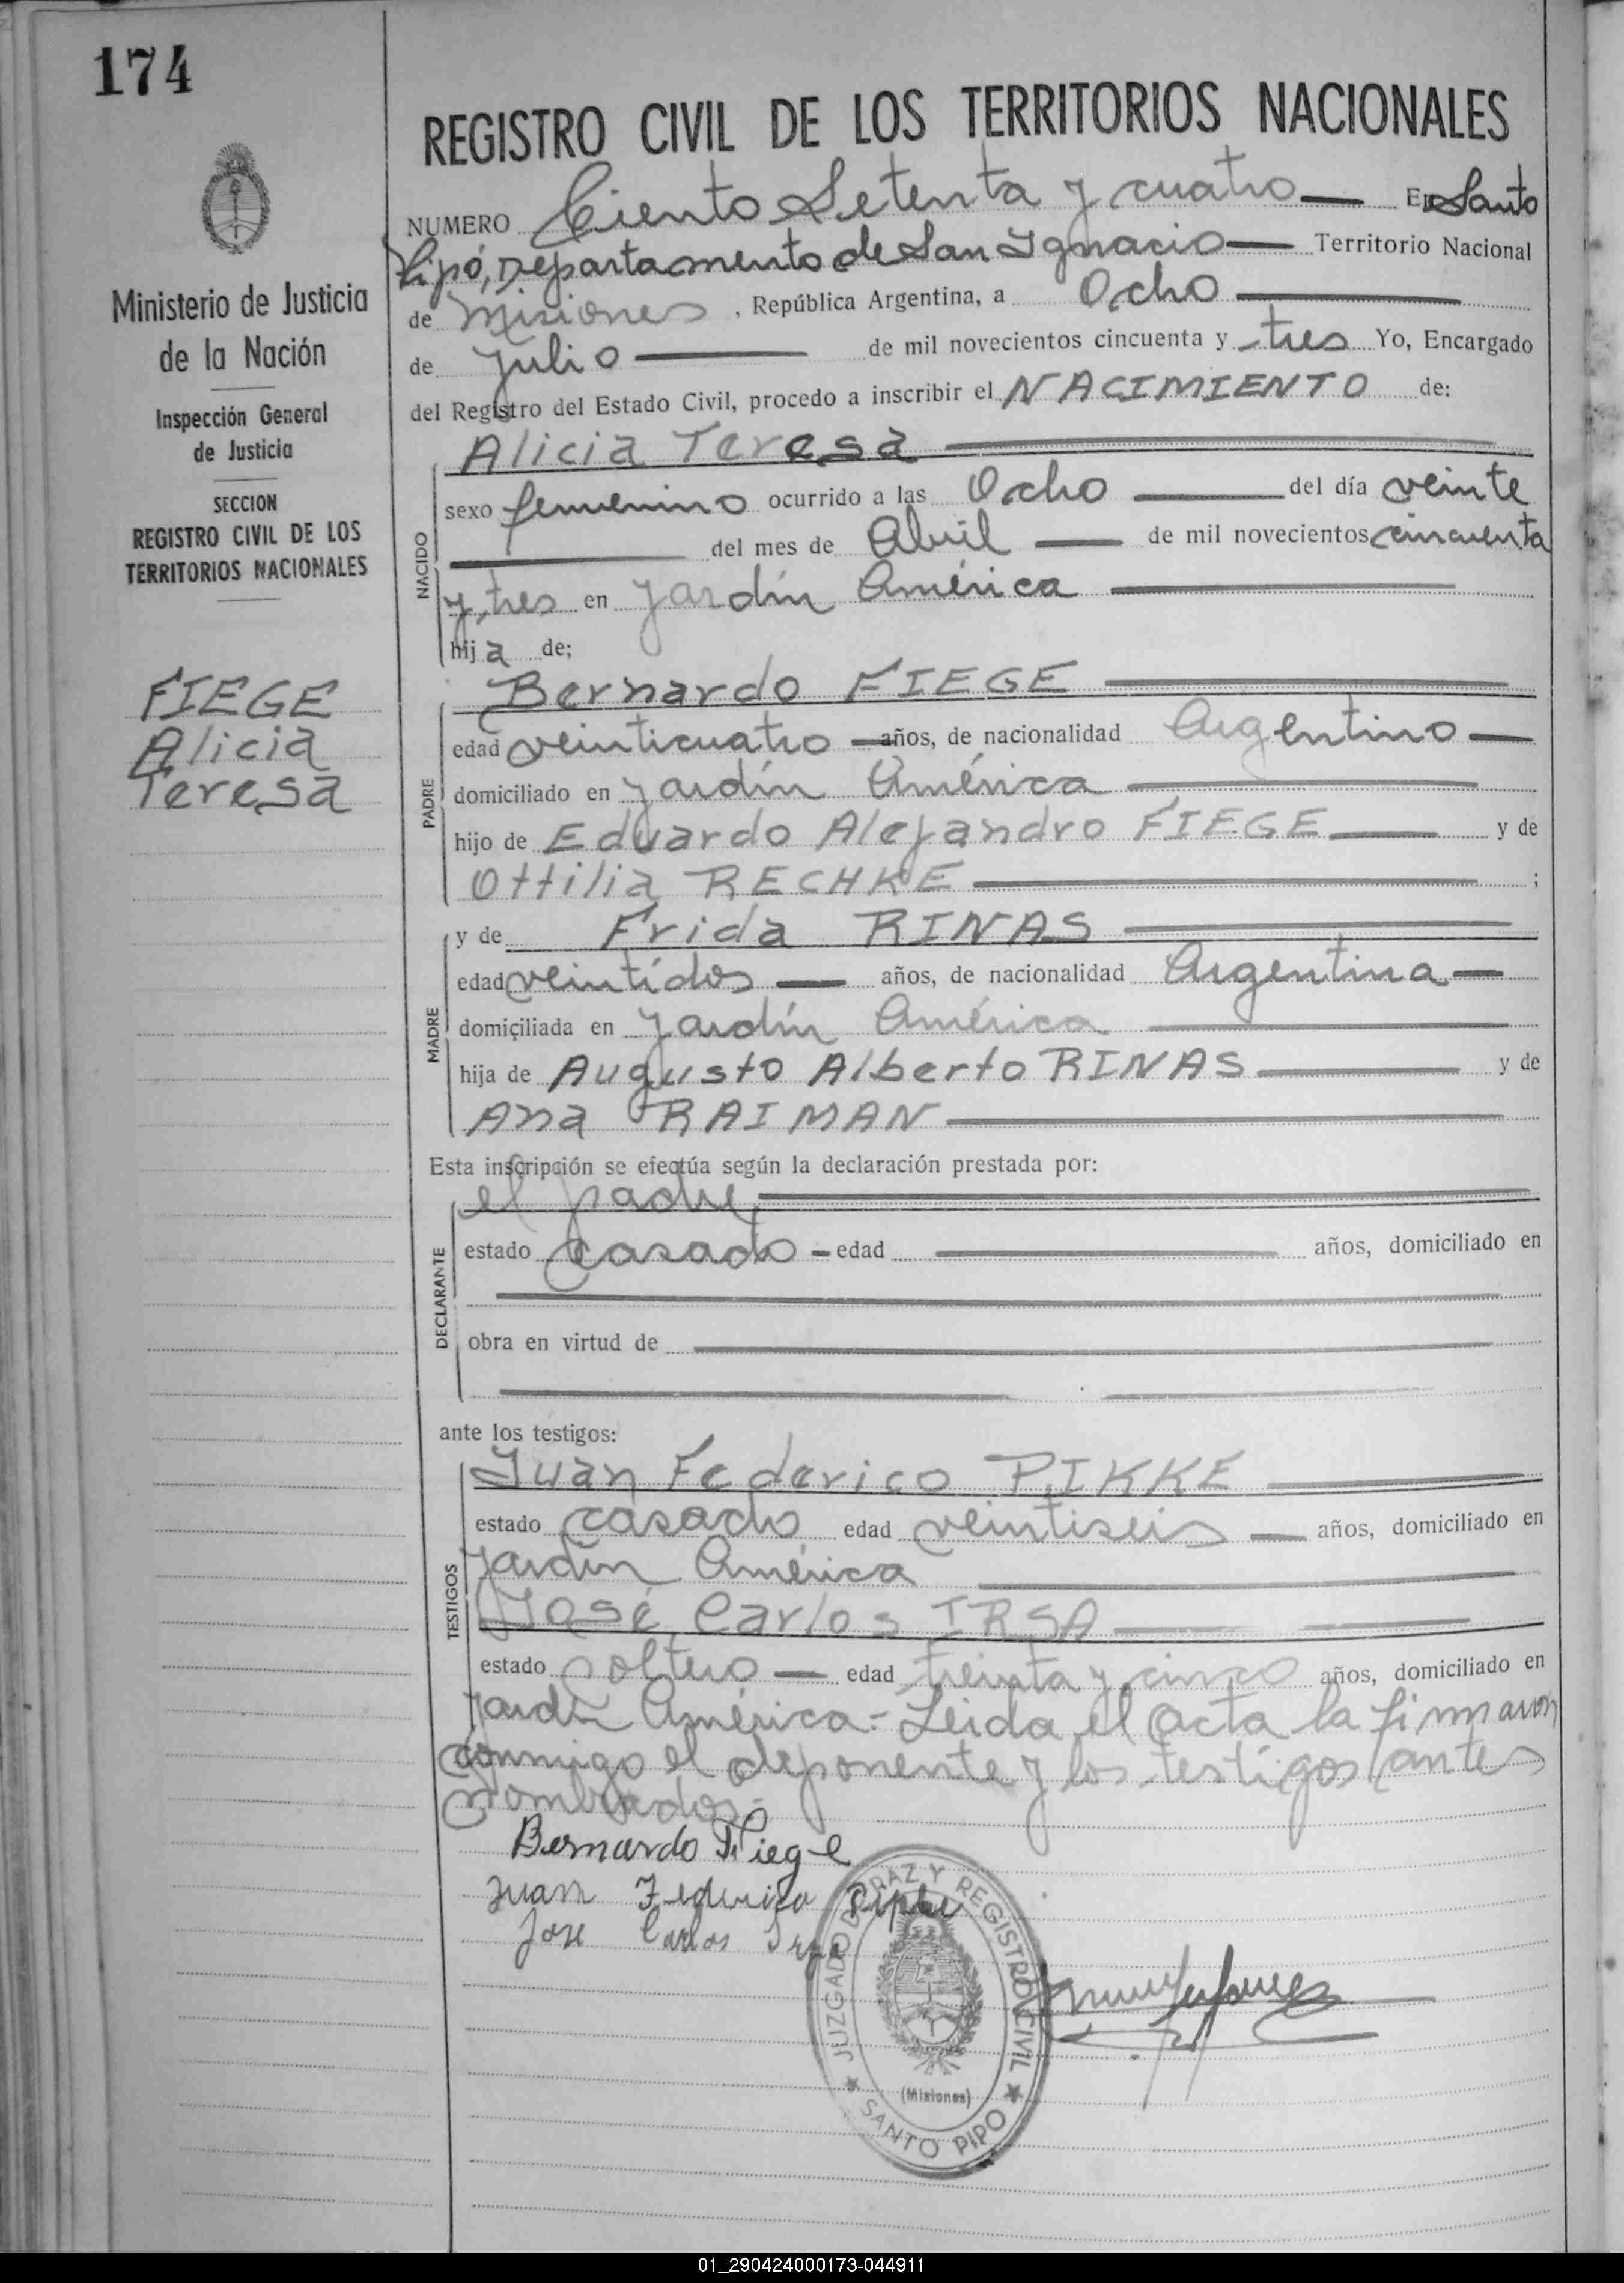 174
REGISTRO CIVIL DE LOS TERRITORIOS NACIONALES
NUMERO Ciento Setenta y cuatro En Santo
Pipó, Departamento de San Ignacio Territorio Nacional
de Misiones, República Argentina, a Ocho
de Julio de mil novecientos cincuenta y tres Yo, Encargado
del Registro del Estado Civil, procedo a inscribir el NACIMIENTO de:
Ministerio de Justicia
de la Nación
Inspección General
de Justicia
SECCION
REGISTRO CIVIL DE LOS
TERRITORIOS NACIONALES
FIEGE
Alicia
Teresa
NACIDO
Alicia Teresa
sexo femenino ocurrido a las Ocho del día veinte
del mes de Abril de mil novecientos cincuenta
y tres en Jardín América
hija de;
PADRE
Bernardo FIEGE
edad veinticuatro años, de nacionalidad Argentino
domiciliado en Jardín América
hijo de Eduardo Alejandro FIEGE y de
Ottilia RECHKE ;
MADRE
y de Frida RINAS
edad veintidos años, de nacionalidad Argentina
domiciliada en Jardín América
hija de Augusto Alberto RINAS y de
Ana RAIMAN
Esta inscripción se efectúa según la declaración prestada por:
DECLARANTE
el padre
estado casado - edad años, domiciliado en
obra en virtud de
ante los testigos:
TESTIGOS
Juan Federico PIKKE
estado casado edad veintiseis años, domiciliado en
Jardín América
José Carlos IRSA
estado soltero edad treinta y cinco años, domiciliado en
Jardín América.- Leida el acta la firmaron
conmigo el deponente y los testigos antes
nombrados.-
Bernardo Fiege
Juan Federico
Jose Carlos
JUZGADO DE PAZ Y REGISTRO CIVIL
(Misiones)
SANTO PIPO
01_290424000173-044911